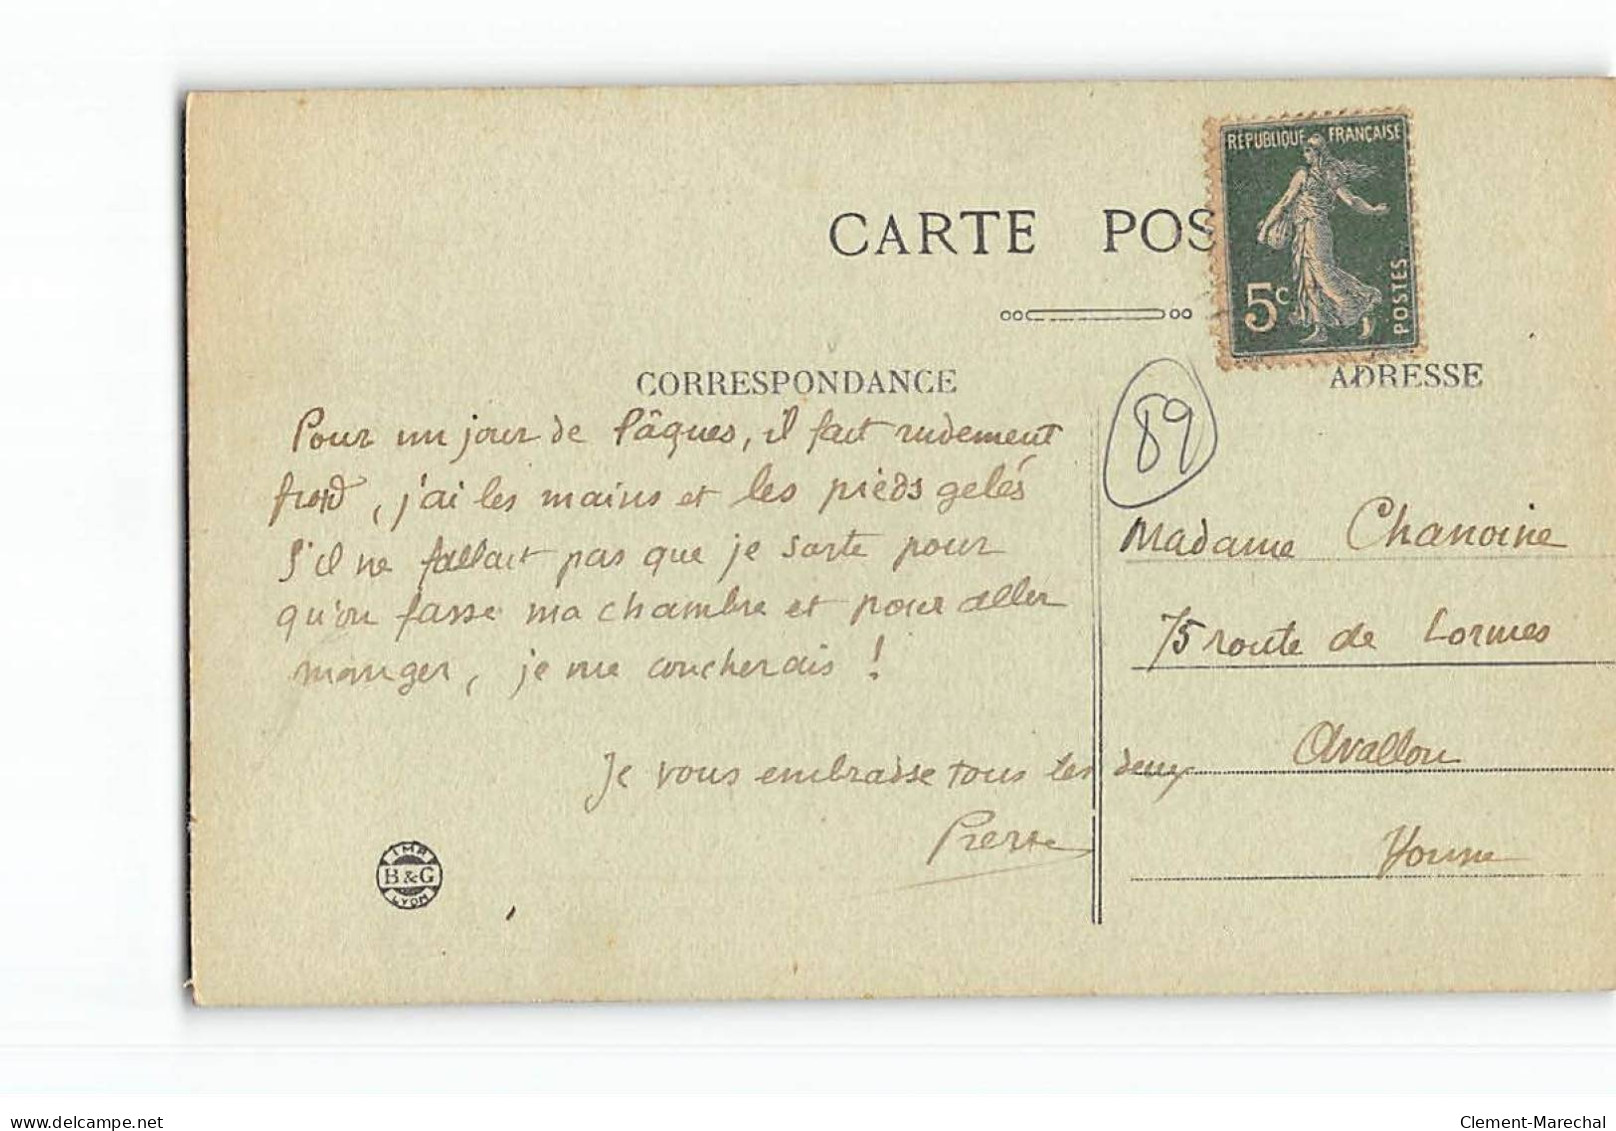 RÉPUBLIQUE FRANÇAISE
5c
POSTES
CARTE POS
CORRESPONDANCE
ADRESSE
Pour un jour de Pâques, il fait rudement
froid, j'ai les mains et les pieds gelés
S'il ne fallait pas que je sorte pour
qu'on fasse ma chambre et pour aller
manger, je me coucherais !
Je vous embrasse tous les deux
Pierre
89
Madame Chanoine
75 route de Lormes
Avallon
Yonne
IMP
B & G
LYON
delcampe.net
Clement-Marechal